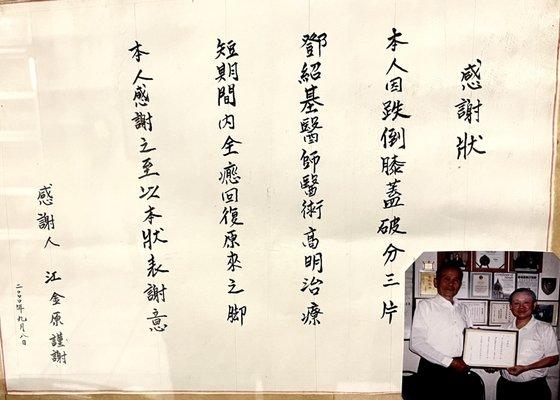 感謝狀
本人因跌倒膝蓋破分三片
鄧紹基醫師醫術高明治療
短期間內全癒回復原來之脚
本人感謝之至以本狀表謝意
感謝人 江金原謹謝
二000年九月八日